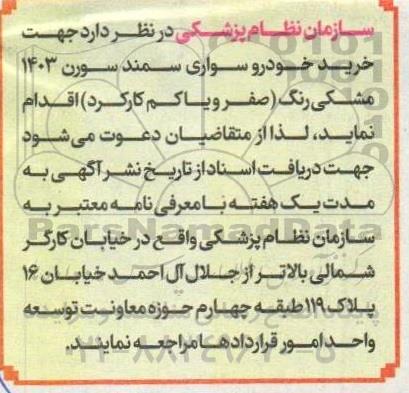 سازمان نظام پزشکی در نظر دارد جهت
خرید خودرو سواری سمند سورن ۱۴۰۳
مشکی رنگ (صفر و یا کم کارکرد) اقدام
نماید، لذا از متقاضیان دعوت می شود
جهت دریافت اسناد از تاریخ نشر آگهی به
مدت یک هفته با معرفی نامه معتبر به
سازمان نظام پزشکی واقع در خیابان کارگر
شمالی بالاتر از جلال آل احمد خیابان ۱۶
پلاک ۱۱۹ طبقه چهارم حوزه معاونت توسعه
واحد امور قراردادها مراجعه نمایند.
ParsNamadData